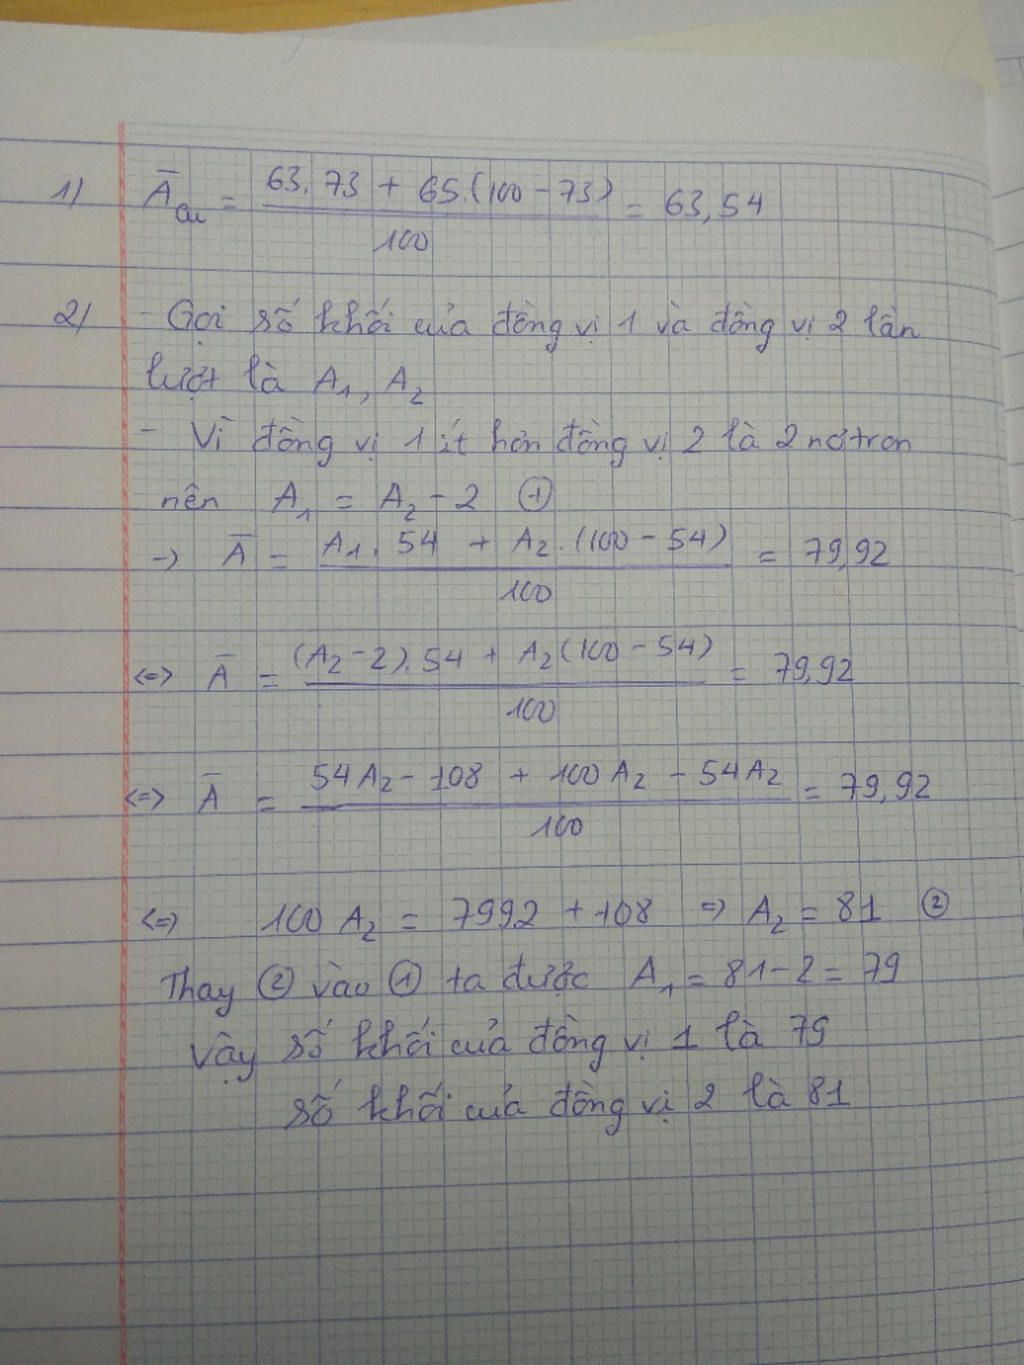 1) Ā_Cu = (63.73 + 65.(100 - 73)) / 100 = 63,54
2) - Gọi số khối của đồng vị 1 và đồng vị 2 lần
lượt là A₁, A₂
- Vì đồng vị 1 ít hơn đồng vị 2 là 2 nơtron
nên A₁ = A₂ - 2 ①
→ Ā = (A₁. 54 + A₂.(100 - 54)) / 100 = 79,92
<=> Ā = ((A₂ - 2).54 + A₂(100 - 54)) / 100 = 79,92
<=> Ā = (54A₂ - 108 + 100A₂ - 54A₂) / 100 = 79,92
<=> 100A₂ = 7992 + 108 => A₂ = 81 ②
Thay ② vào ① ta được A₁ = 81 - 2 = 79
Vậy số khối của đồng vị 1 là 79
số khối của đồng vị 2 là 81